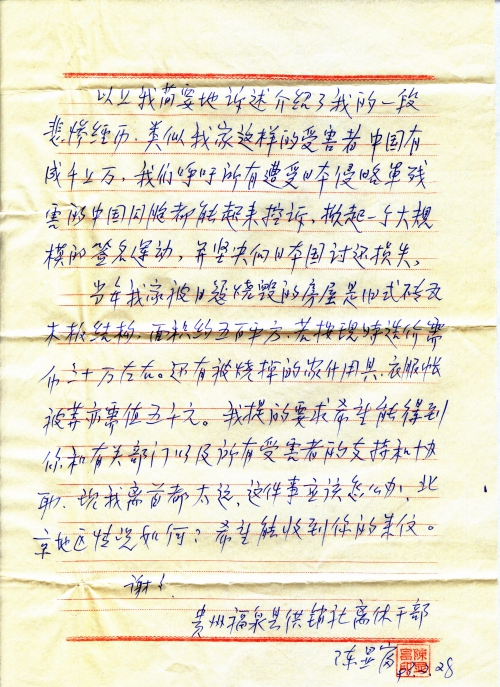 以上我简要地诉述介绍了我的一段
悲惨经历.类似我家这样的受害者中国有
成千上万,我们呼吁所有遭受日本侵略军残
害的中国同胞都能起来控诉,掀起一个大规
模的签名运动,并坚决向日本国讨还损失。
当年我家被日寇烧毁的房屋是旧式砖瓦
木板结构,面积约五百平方.若按现时造价需
币三十万左右。还有被烧掉的家什用具.衣服帐
被等亦需值五千元。我提的要求希望能得到
你和有关部门以及所有受害者的支持和协
助.现我离首都太远,这件事应该怎么办,北
京地区情况如何?希望能收到你的来仪。
谢谢
贵州福泉县供销社离休干部
陈
28